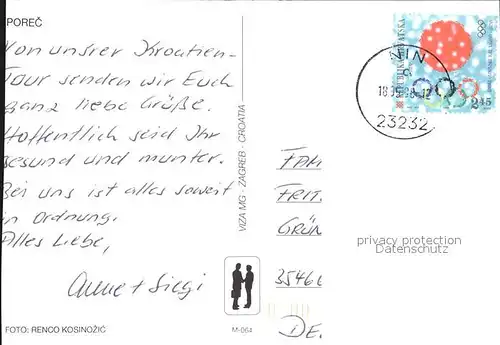 POREČ
Von unsrer Kroatien-
Tour senden wir Euch
ganz liebe Grüße.
Hoffentlich seid Ihr
gesund und munter.
Bei uns ist alles soweit
in Ordnung.
Alles Liebe,
Anne + Siegi
FOTO: RENCO KOSINOŽIĆ
VIZA MG - ZAGREB - CROATIA
M-064
REPUBLIKA HRVATSKA
2.45
NIN
23232
FAM
FRIT
GRÜN
35466
DE
privacy protection
Datenschutz